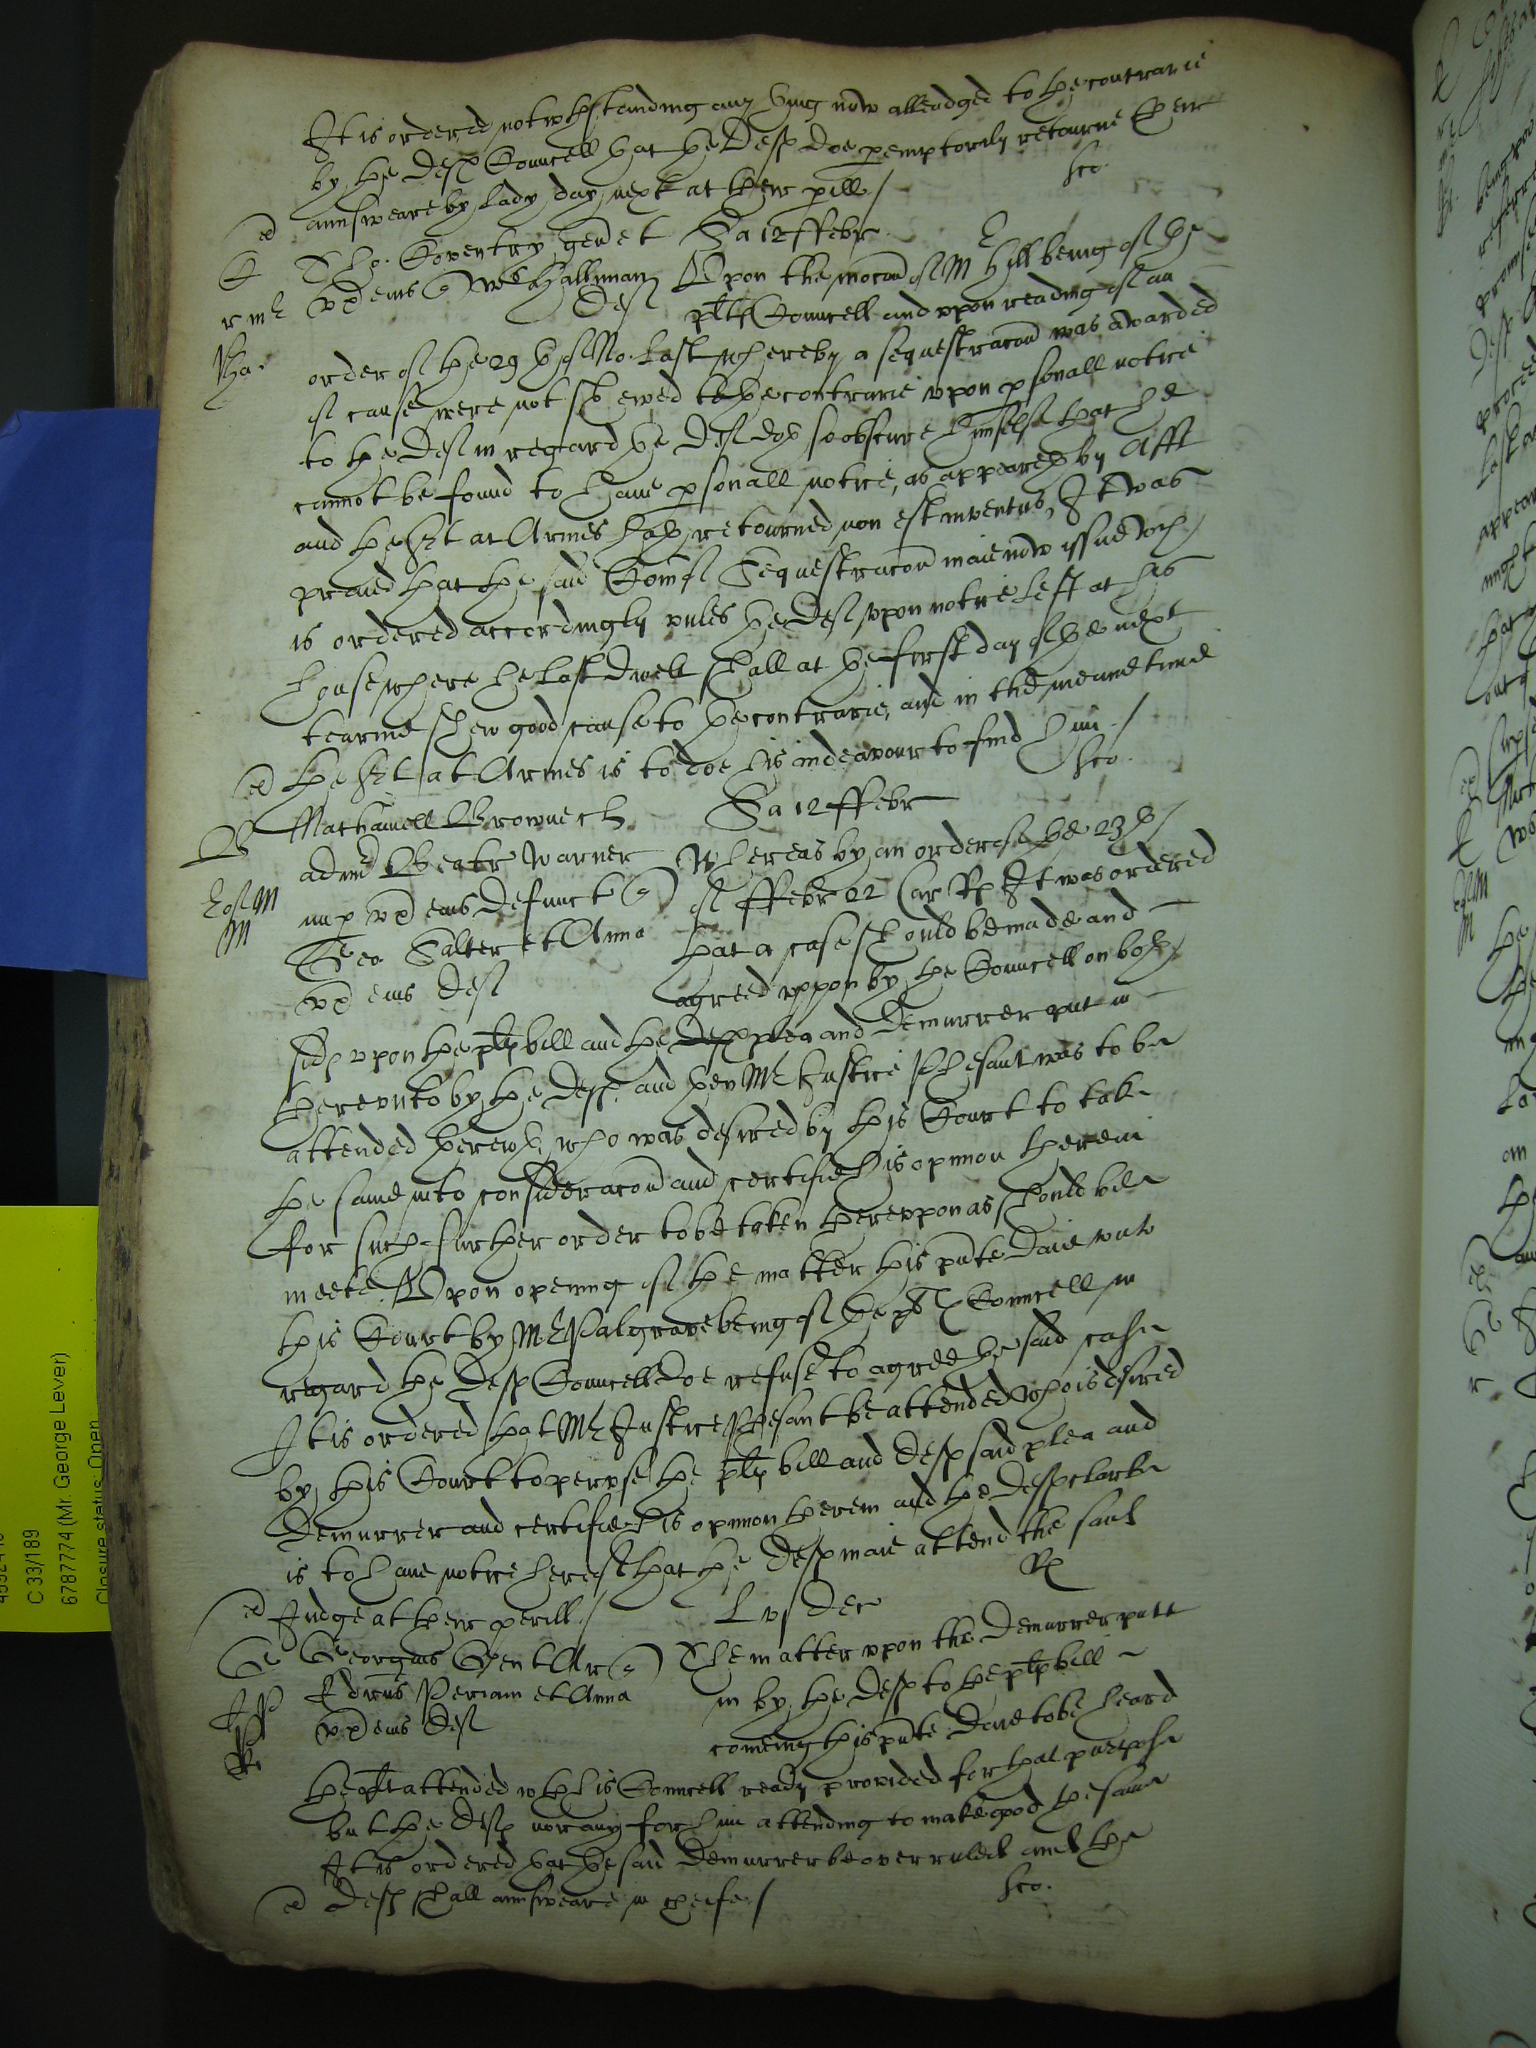 It is ordered notwthstanding any thing now alleadged to the contrarie
by the Defts Councell that the Defts doe peremptorily returne their
annsweare by Lady day next at their perill /
sco.
ed
C Tho. Coventry gen et Sa 12 ffebr
r mr vx eius Halliman Vpon the mocon of Mr Hill being of the
Def plts Councell and vpon reading of an
Ha. order of the 29th of No. last whereby a sequestracon was awarded
if cause were not shewed to the contrarie vpon psonall notice
to the Def in regard the Def doth so obscure himselfe that he
cannot be found to haue psonall notice, as appeareth by Afft
and the Sert at Armes hath retourned non est inventus, It was
praied that the said Comss Sequestracon maie now issue wch
is ordered accordingly vnles the Def vpon notice left at his
house where he last dwelt shall at the first day of the next
tearme shew good cause to the contrarie, and in the meane time
ed the Sert at Armes is to doe his indeavour to find him. /
sco.
B Nathaniell Browne cler Sa 12 ffebr
admr Beatr Warner Whereas by an order of the 23th
E of M nup vx eius defunct of ffebr 22 Car Rs It was ordered
M Geo Salter et Anna that a case should be made and
vx eius Def agreed vppon by the Councell on both
sids vpon the plts bill and the plea and Demurrer put in
therevnto by the Defts and then Mr Justice Phesant was to be
attended therewth who was desired by this Court to take
the same into consideracon and certifie his opinion therein
for such further order to be taken therevpon as should be
meete. Vpon opening of the matter this pnte daie vnto
this Court by Mr Palgrave being of the plts Councell in
regard the Defts Councell doe refuse to agree the said case
It is ordered that Mr Justice Phesant be attended who is desired
by this Court to pervse the plts bill and Defts said plea and
Demurrer and certifie his opinion therein and the Defts clarke
is to haue notice hereof that the Defts maie attend the said
ed Judge at their perill. /
Rs
Ge Georgius Gent Ar Lv° der
The matter vpon the Demurrer putt
JP Johnes Periam et Anna in by the Defts to the plts bill
vx eius Def comeing this pnte daie to be heard
the plt attended wth his Councell ready provided for that purpose
but the Defts nor any for him attending to make good the same
It is ordered that the said Demurrer be overruled and the
ed Defts shall annsweare in cheife. /
sco.
C 33/189
6787774 (Mr. George Lever)
Closure status: Open